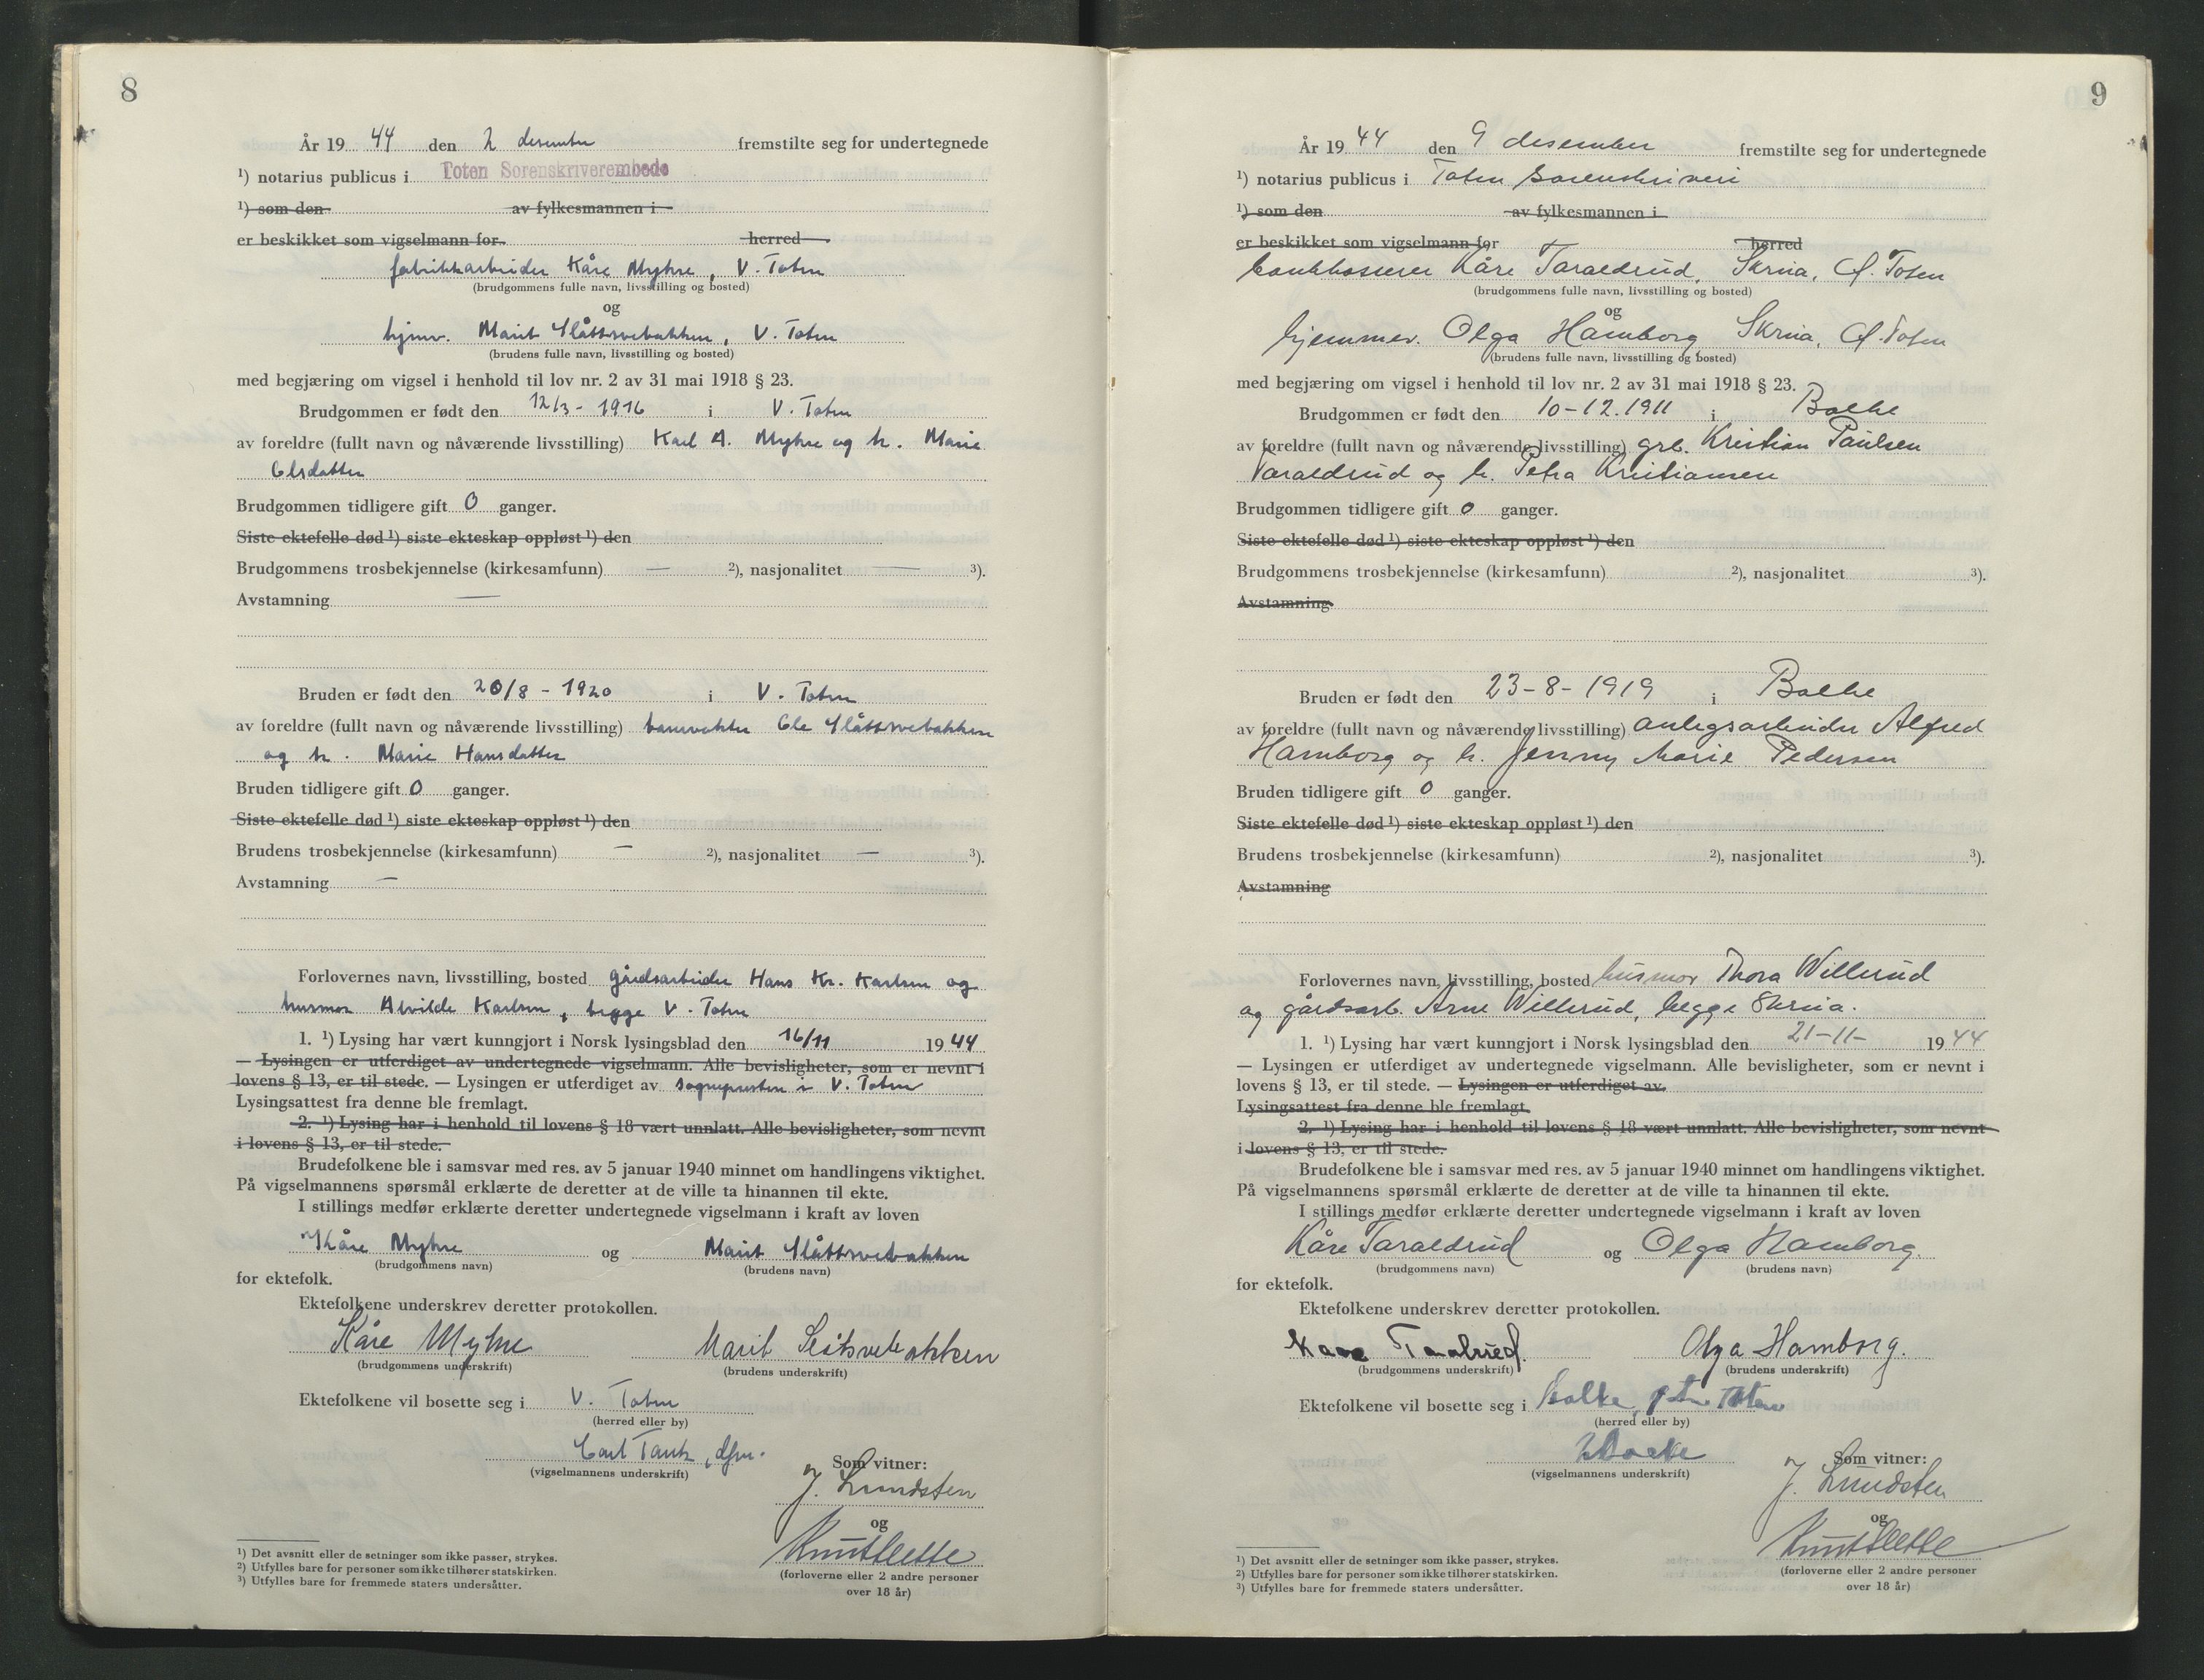 8
År 19 44 den 2 desember fremstilte seg for undertegnede
¹) notarius publicus i Toten Sorenskriverembede
¹) som den av fylkesmannen i
er beskikket som vigselmann for herred
fabrikkarbeider Kåre Myhre, V. Toten
(brudgommens fulle navn, livsstilling og bosted)
og
hjmv. Marit Slåttsvebakken, V. Toten
(brudens fulle navn, livsstilling og bosted)
med begjæring om vigsel i henhold til lov nr. 2 av 31 mai 1918 § 23.
Brudgommen er født den 12/3 - 1916 i V. Toten
av foreldre (fullt navn og nåværende livsstilling) Karl A. Myhre og h. Marie
Olsdatter
Brudgommen tidligere gift 0 ganger.
Siste ektefelle død ¹) siste ekteskap oppløst ¹) den
Brudgommens trosbekjennelse (kirkesamfunn) — ²), nasjonalitet — ³).
Avstamning —
Bruden er født den 20/8 - 1920 i V. Toten
av foreldre (fullt navn og nåværende livsstilling) banevokter Ole Slåttsvebakken
og h. Marie Hansdatter
Bruden tidligere gift 0 ganger.
Siste ektefelle død ¹) siste ekteskap oppløst ¹) den
Brudens trosbekjennelse (kirkesamfunn) — ²), nasjonalitet — ³).
Avstamning —
Forlovernes navn, livsstilling, bosted gårdsarbeider Hans Kr. Karlsen og
husmor Alvilde Karlsen, begge V. Toten
1. ¹) Lysing har vært kunngjort i Norsk lysingsblad den 16/11 19 44
— Lysingen er utferdiget av undertegnede vigselmann. Alle bevisligheter, som er nevnt i
lovens § 13, er til stede. — Lysingen er utferdiget av sognepresten i V. Toten
Lysingsattest fra denne ble fremlagt.
2. ¹) Lysing har i henhold til lovens § 18 vært unnlatt. Alle bevisligheter, som nevnt
i lovens § 13, er til stede.
Brudefolkene ble i samsvar med res. av 5 januar 1940 minnet om handlingens viktighet.
På vigselmannens spørsmål erklærte de deretter at de ville ta hinannen til ekte.
I stillings medfør erklærte deretter undertegnede vigselmann i kraft av loven
Kåre Myhre og Marit Slåttsvebakken
(brudgommens navn) (brudens navn)
for ektefolk.
Ektefolkene underskrev deretter protokollen.
Kåre Myhre Marit Slåtsvebakken
(brudgommens underskrift) (brudens underskrift)
Ektefolkene vil bosette seg i V. Toten
(herred eller by)
Carl Tank, dfm.
(vigselmannens underskrift) Som vitner:
J. Lundsten
og
¹) Det avsnitt eller de setninger som ikke passer, strykes.
²) Utfylles bare for personer som ikke tilhører statskirken.
³) Utfylles bare for fremmede staters undersåtter.
(forloverne eller 2 andre personer
over 18 år)
9
År 19 44 den 9 desember fremstilte seg for undertegnede
¹) notarius publicus i Toten sorenskriveri
¹) som den av fylkesmannen i
er beskikket som vigselmann for herred
bankkasserer Kåre Taraldrud, Skreia, Ø. Toten
(brudgommens fulle navn, livsstilling og bosted)
og
hjemmev. Olga Hamborg Skreia, Ø. Toten
(brudens fulle navn, livsstilling og bosted)
med begjæring om vigsel i henhold til lov nr. 2 av 31 mai 1918 § 23.
Brudgommen er født den 10-12.1911 i Balke
av foreldre (fullt navn og nåværende livsstilling) grb. Kristian Paulsen
Taraldrud og h. Petra Kristiansen
Brudgommen tidligere gift 0 ganger.
Siste ektefelle død ¹) siste ekteskap oppløst ¹) den
Brudgommens trosbekjennelse (kirkesamfunn) ²), nasjonalitet ³).
Avstamning
Bruden er født den 23-8-1919 i Balke
av foreldre (fullt navn og nåværende livsstilling) anlegsarbeider Alfred
Hamborg og h. Jenny Marie Pedersen
Bruden tidligere gift 0 ganger.
Siste ektefelle død ¹) siste ekteskap oppløst ¹) den
Brudens trosbekjennelse (kirkesamfunn) ²), nasjonalitet ³).
Avstamning
Forlovernes navn, livsstilling, bosted husmor Thora Willerud
og gårdsarb. Arne Willerud, begge Skreia.
1. ¹) Lysing har vært kunngjort i Norsk lysingsblad den 21-11- 19 44
— Lysingen er utferdiget av undertegnede vigselmann. Alle bevisligheter, som er nevnt i
lovens § 13, er til stede. — Lysingen er utferdiget av
Lysingsattest fra denne ble fremlagt.
2. ¹) Lysing har i henhold til lovens § 18 vært unnlatt. Alle bevisligheter, som nevnt
i lovens § 13, er til stede.
Brudefolkene ble i samsvar med res. av 5 januar 1940 minnet om handlingens viktighet.
På vigselmannens spørsmål erklærte de deretter at de ville ta hinannen til ekte.
I stillings medfør erklærte deretter undertegnede vigselmann i kraft av loven
Kåre Taraldrud og Olga Hamborg.
(brudgommens navn) (brudens navn)
for ektefolk.
Ektefolkene underskrev deretter protokollen.
Kaare Taralrud. Olga Hamborg.
(brudgommens underskrift) (brudens underskrift)
Ektefolkene vil bosette seg i Balke, Østre Toten
(herred eller by)
(vigselmannens underskrift) Som vitner:
J. Lundsten
og
¹) Det avsnitt eller de setninger som ikke passer, strykes.
²) Utfylles bare for personer som ikke tilhører statskirken.
³) Utfylles bare for fremmede staters undersåtter.
(forloverne eller 2 andre personer
over 18 år)